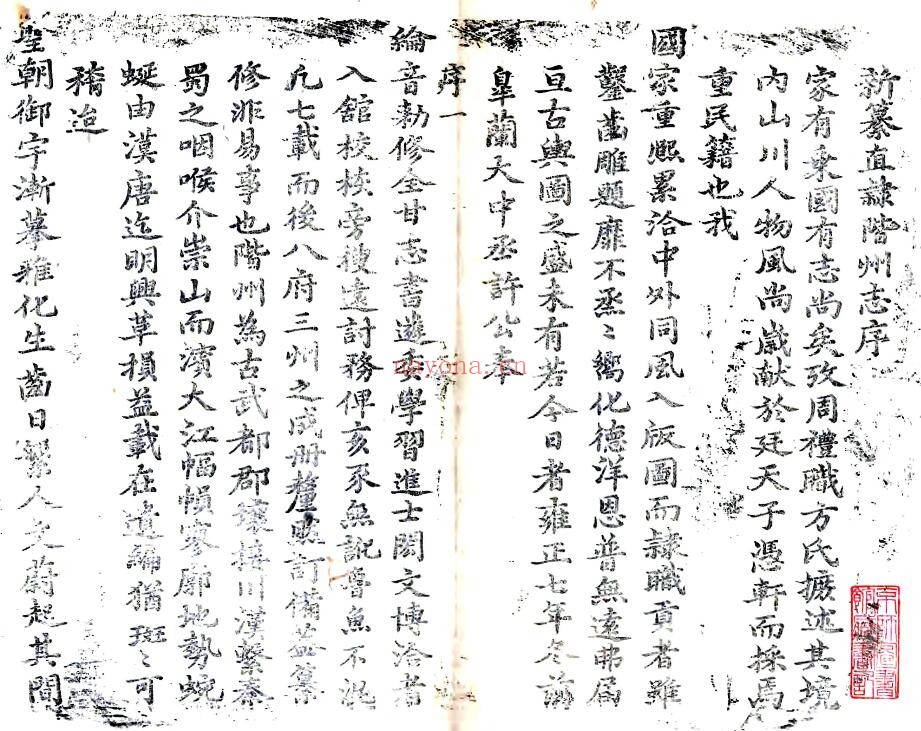 新纂直隸階州志序
家有乗國有志尚矣攷周禮職方氏摭述其境
内山川人物風尚歲献於廷天子憑軒而採焉
重民籍也我
國家重熙累洽中外同風入版圖而隸職貢者雖
鑿齒雕題靡不烝〻嚮化德洋恩普無遠弗屆
亘古輿圖之盛未有若今日者雍正七年冬
皐蘭大中丞許公奉
序 一
綸音勅修全甘志書遊委學習進士閎文博洽者
入舘校核旁搜遠討務俾亥豕無訛魯魚不混
凢七載而後八府三州之成册釐然訂備葢纂
修非易事也階州為古武都郡壤接川漢繫秦
蜀之咽喉介崇山而濱大江幅幀寥廓地勢蜿
蜒由漢唐迄明興革損益載在遺編猶班〻可
稽迨
聖朝御宇漸摹雅化生齒日繁人文蔚起其間
nayona.cn